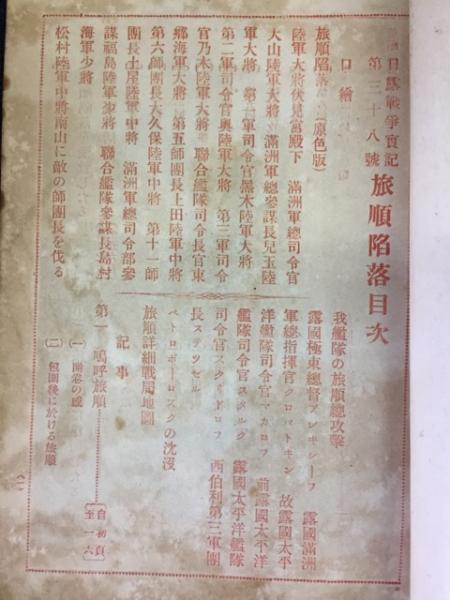 日露戰爭實記
第三十八號 旅順陷落目次
口繪
旅順陷落…(原色版)
陸軍大將伏見宮殿下 滿洲軍總司令官
大山陸軍大將 滿洲軍總參謀長兒玉陸
軍大將 第一軍司令官黑木陸軍大將
第二軍司令官奧陸軍大將 第三軍司令
官乃木陸軍大將 聯合艦隊司令長官東
鄉海軍大將 第五師團長上田陸軍中將
第六師團長大久保陸軍中將 第十一師
團長土屋陸軍中將 滿洲軍總司令部參
謀福島陸軍少將 聯合艦隊參謀長島村
海軍少將
松村陸軍中將南山に敵の師團長を伐る
我艦隊の旅順總攻擊
露國極東總督アレキシーフ 露國滿洲
軍總指揮官クロパトキン 故露國太平
洋艦隊司令官マカロフ 前露國太平洋
艦隊司令官スタルク 露國太平洋艦隊
司令官スクリドロフ 西伯利第三軍團
長ステツセル
ペトロポーロスクの沈沒
旅順詳細戰局地圖
記事
第一 嗚呼旅順……自初頁至一六
(一)開卷の感
(二)包圍後に於ける旅順